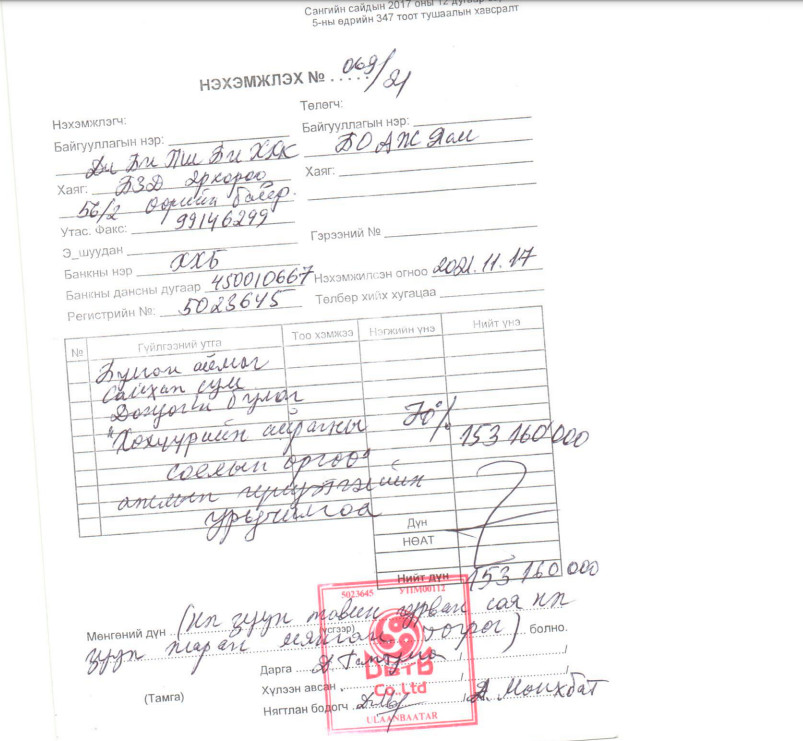 Сангийн сайдын 2017 оны 12 дугаар
5-ны өдрийн 347 тоот тушаалын хавсралт
НЭХЭМЖЛЭХ № 069/21
Нэхэмжлэгч:
Төлөгч:
Байгууллагын нэр:
Байгууллагын нэр:
Ди Би Пи Би ХХК
БОАЖЯам
Хаяг: БЗД
Хаяг:
56/2 Өөрийн байр.
Утас. Факс: 99146299
Э_шуудан
Гэрээний №
Банкны нэр ХХБ
Банкны дансны дугаар 450010667
Нэхэмжилсэн огноо 2021.11.17
Регистрийн №: 5023645
Төлбөр хийх хугацаа
№ Гүйлгээний утга Тоо хэмжээ Нэгжийн үнэ Нийт үнэ
Булган аймаг
Сайхан сум
булаг
"Хөхүүрийн айрагны 70% 153 160 000
соёлын өргөө"
ажлын гүйцэтгэлийн
урьдчилгаа
Дүн
НӨАТ
Нийт дүн 153 160 000
5023645 УПМ00112
Мөнгөний дүн (нэг зуун тавин гурван сая нэг
(үсгээр)
зуун жаран мянган төгрөг) болно.
Дарга
Хүлээн авсан
(Тамга)
Нягтлан бодогч Д. Мөнхбат
Co.,Ltd
ULAANBAATAR